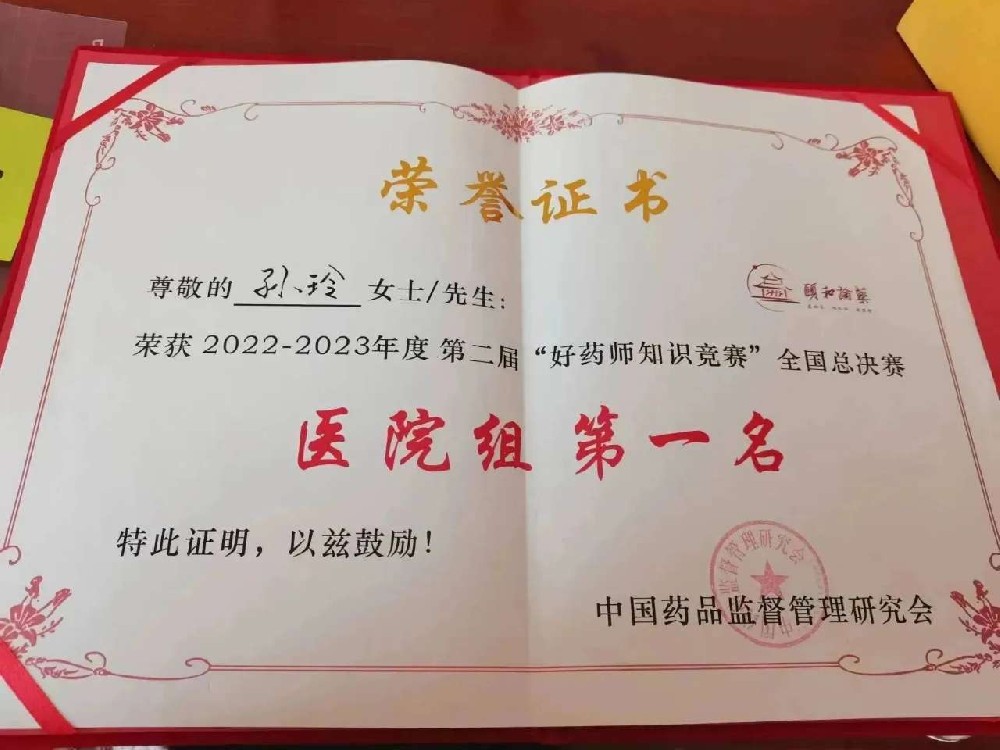 荣誉证书
尊敬的 孙玲 女士/先生：
颐和论药
荣获 2022-2023年度 第二届 “好药师知识竞赛” 全国总决赛
医院组 第一名
特此证明，以兹鼓励！
中国药品监督管理研究会